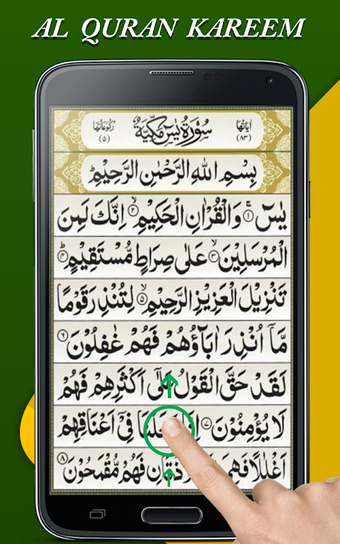 AL QURAN KAREEM
اٰيَاتُهَا سُوْرَةُ يٰسٓ مَكِّيَّةٌ رُكُوْعَاتُهَا
(۸۳) (۵)
بِسْمِ اللهِ الرَّحْمٰنِ الرَّحِيْمِ
يٰسٓ ۱ وَالْقُرْاٰنِ الْحَكِيْمِ ۲ اِنَّكَ لَمِنَ
الْمُرْسَلِيْنَ ۳ عَلٰى صِرَاطٍ مُّسْتَقِيْمٍ ۴
تَنْزِيْلَ الْعَزِيْزِ الرَّحِيْمِ ۵ لِتُنْذِرَ قَوْمًا
مَّآ اُنْذِرَ اٰبَآؤُهُمْ فَهُمْ غٰفِلُوْنَ ۶
لَقَدْ حَقَّ الْقَوْلُ عَلٰٓى اَكْثَرِهِمْ فَهُمْ
لَا يُؤْمِنُوْنَ ۷ فِيْٓ اَعْنَاقِهِمْ
اَغْلٰلًا فَهِيَ فَهُمْ مُّقْمَحُوْنَ ۸